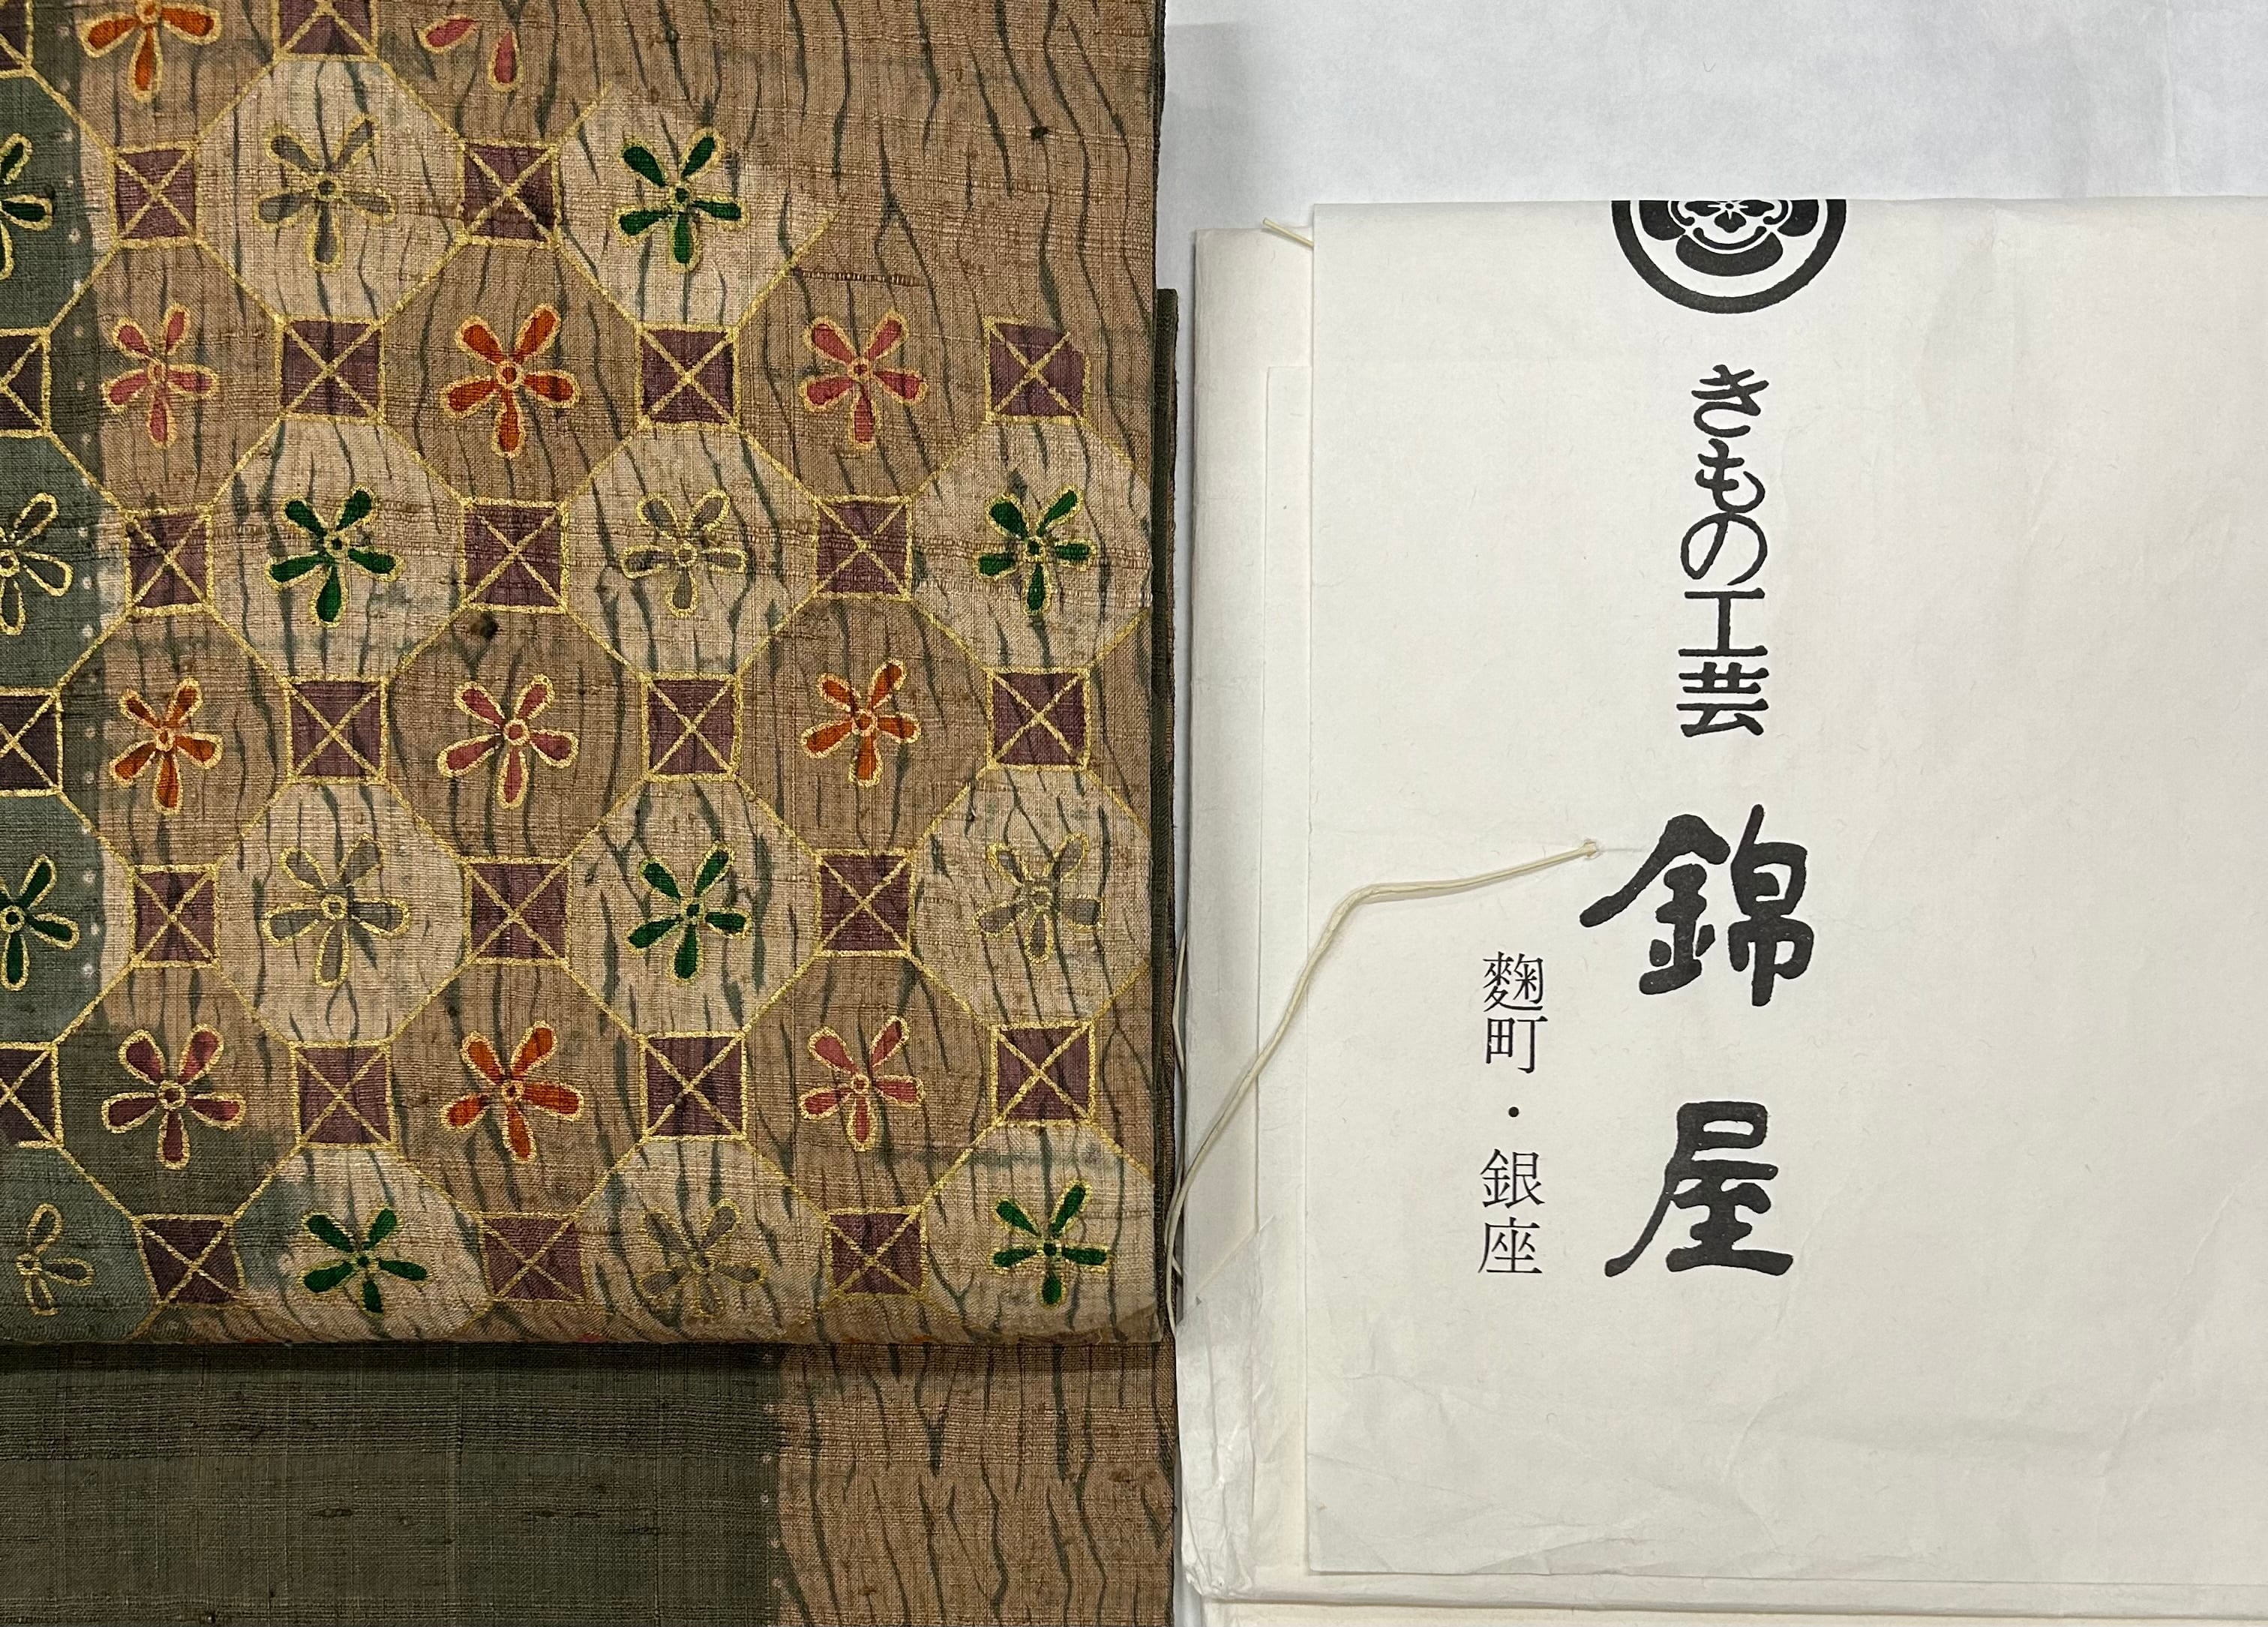 きもの工芸
錦屋
麴町・銀座